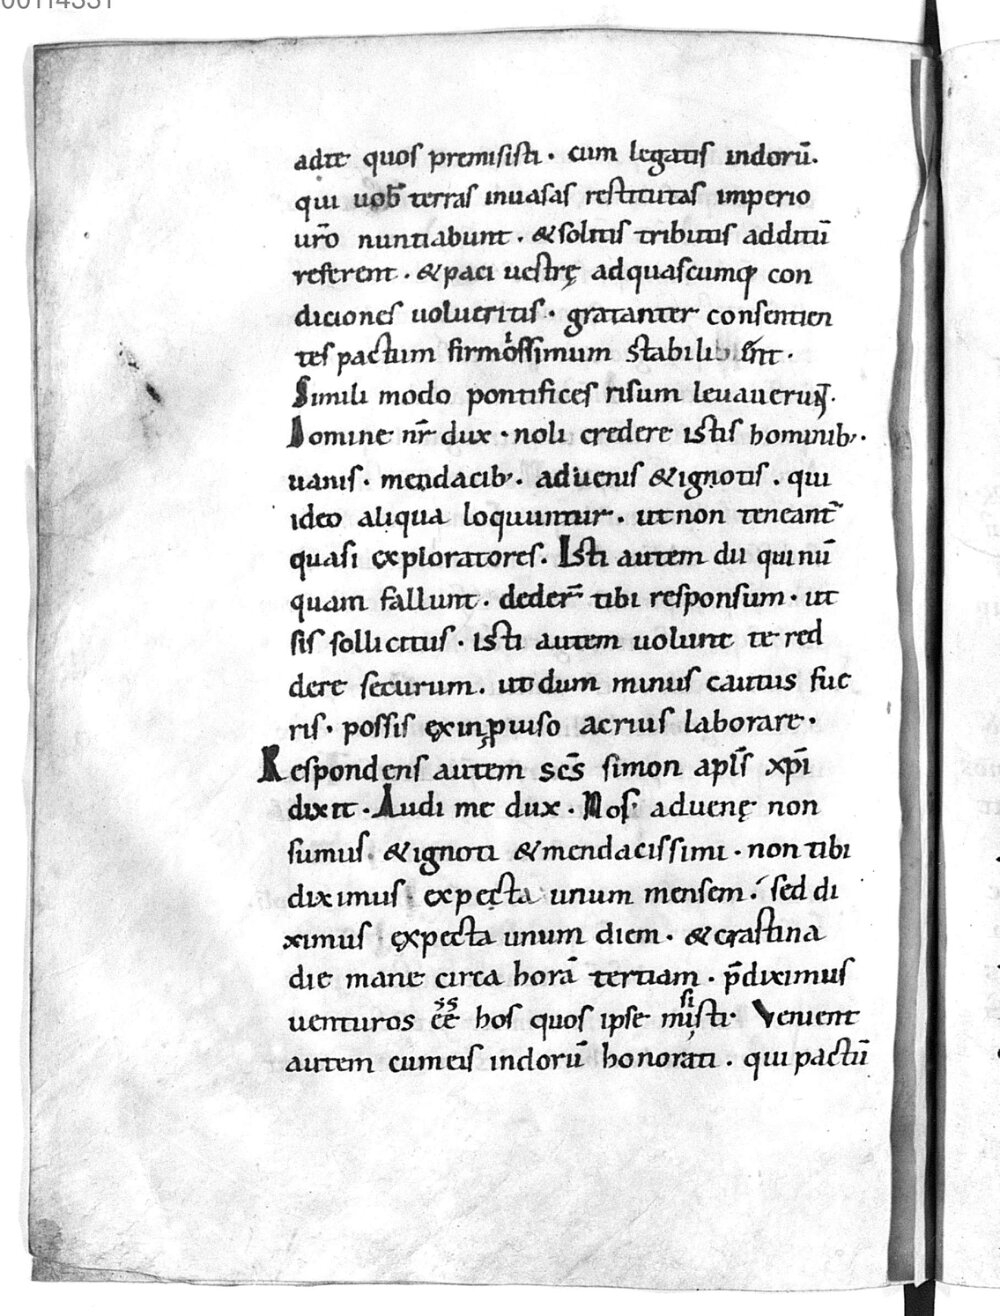 adte quos premisisti. cum legatis indorū.
qui uob̄ terras inuasas restitutas imperio
ur̄o nuntiabunt. & solitis tributis additū
referent. & paci uestrę ad quascumq; con
diciones uolueritis. gratanter consentien
tes pactum firmossimum stabilient.
Simili modo pontifices risum leuauerunt.
Domine nr̄ dux. noli credere istis hominib;.
uanis. mendacib;. aduenis & ignotis. qui
ideo aliqua loquuntur. ut non teneant̄
quasi exploratores. Isti autem dii qui nū
quam fallunt. deder̄ tibi responsum. ut
sis sollicitus. isti autem uolunt te red
dere securum. ut dum minus cautus fue
ris. possis ex inprouiso acrius laborare.
Respondens autem scs̄ simon apls̄ xpī
dixit. Audi me dux. Nos aduenę non
sumus. & ignoti & mendacissimi. non tibi
diximus expecta unum mensem. sed di
ximus expecta unum diem. & crastina
die mane circa horā tertiam. p̄diximus
uenturos ēē hos quos ipse misisti. Venient
autem cum eis indorū honorati. qui pactū